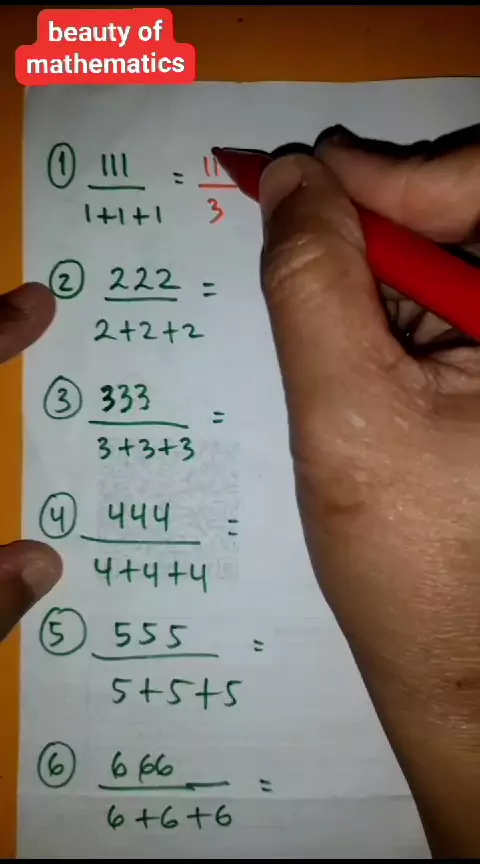 beauty of
mathematics
① 111 = 11
1+1+1 3
② 222 =
2+2+2
③ 333 =
3+3+3
④ 444 =
4+4+4
⑤ 555 =
5+5+5
⑥ 666 =
6+6+6